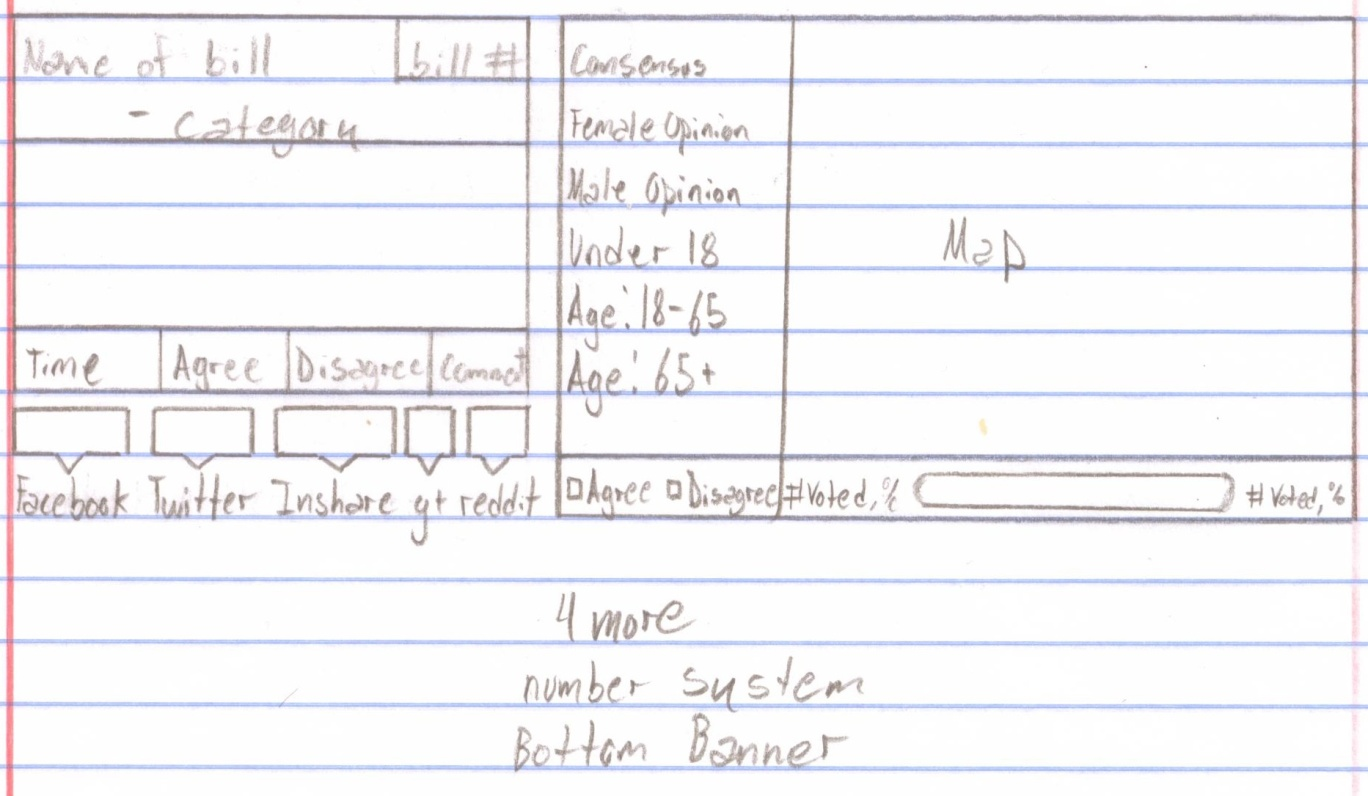 Name of bill
bill #
- Category
Time Agree Disagree Comment
Facebook Twitter Inshare g+ reddit
Consensus
Female Opinion
Male Opinion
Under 18
Age: 18-65
Age: 65+
Map
Agree Disagree #Voted, % # Voted, %
4 more
number system
Bottom Banner